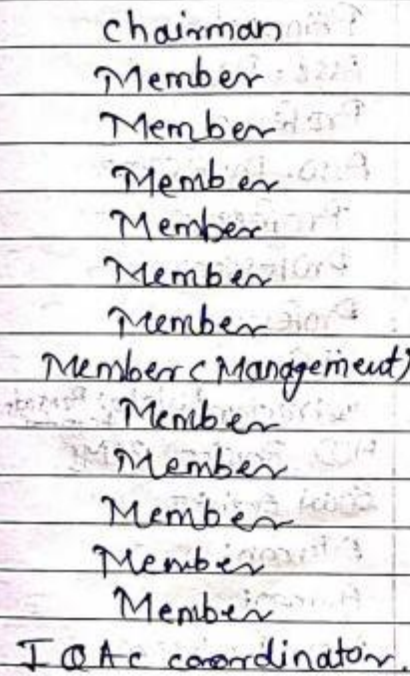 chairman
Member
Member
Member
Member
Member
Member
Member (Management)
Member
Member
Member
Member
Member
IQAC coordinator.